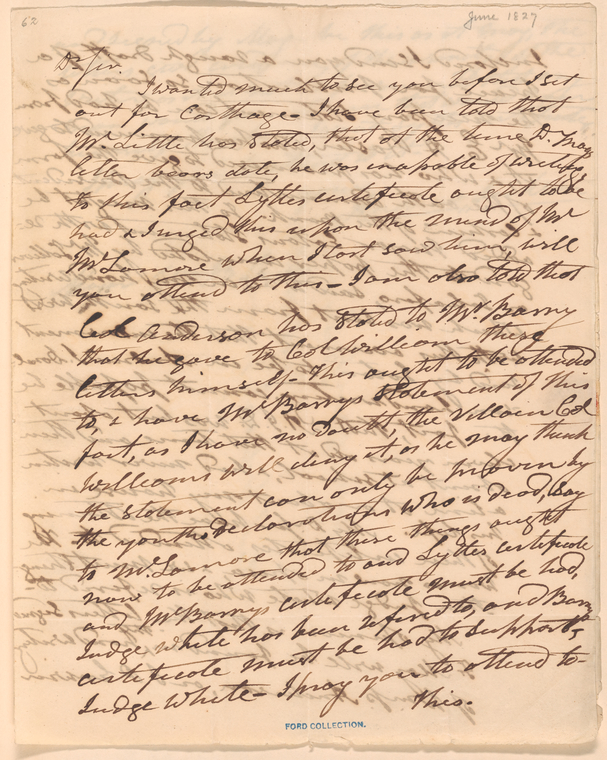 62
June 1827
Dr Sir.
I wanted much to see you before I set
out for Carthage - I have been told that
Mr. Little has stated, that at the time D.
letter bears date, he was incapable of writing
to this fact Lyttes certificate ought to be
had & I urged this upon the mind of Mr
McLamore when I last saw him, will
you attend to this - I am also told that
Col Anderson has stated to Mr. Barry
that he gave to Col William these
letters himself - This ought to be attended
to, & have Mr Barrys statement of this
fact, as I have no doubt, the Villain Col
Williams will deny it, as he may think
the statement can only be proven by
the declarations who is dead, Say
to McLamore that these things ought
now to be attended to and Lyttes certificate
and Mr Barrys certificate must be had,
Judge White has been refered to, and Barrys
certificate must be had to support
Judge White - I pray you to attend to
this.
FORD COLLECTION.